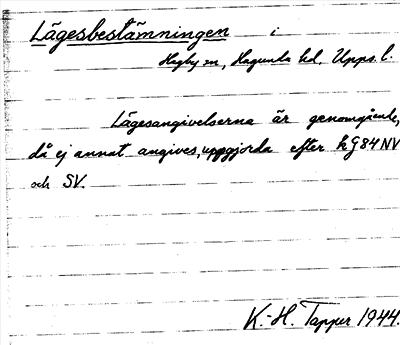 Lägesbestämningen i
Hagby sn, Hagunda hd, Upps. l.
Lägesangivelserna är genomgående,
då ej annat angives, uppgjorda efter k G84 NV
och SV.
K.-H. Tapper 1944.